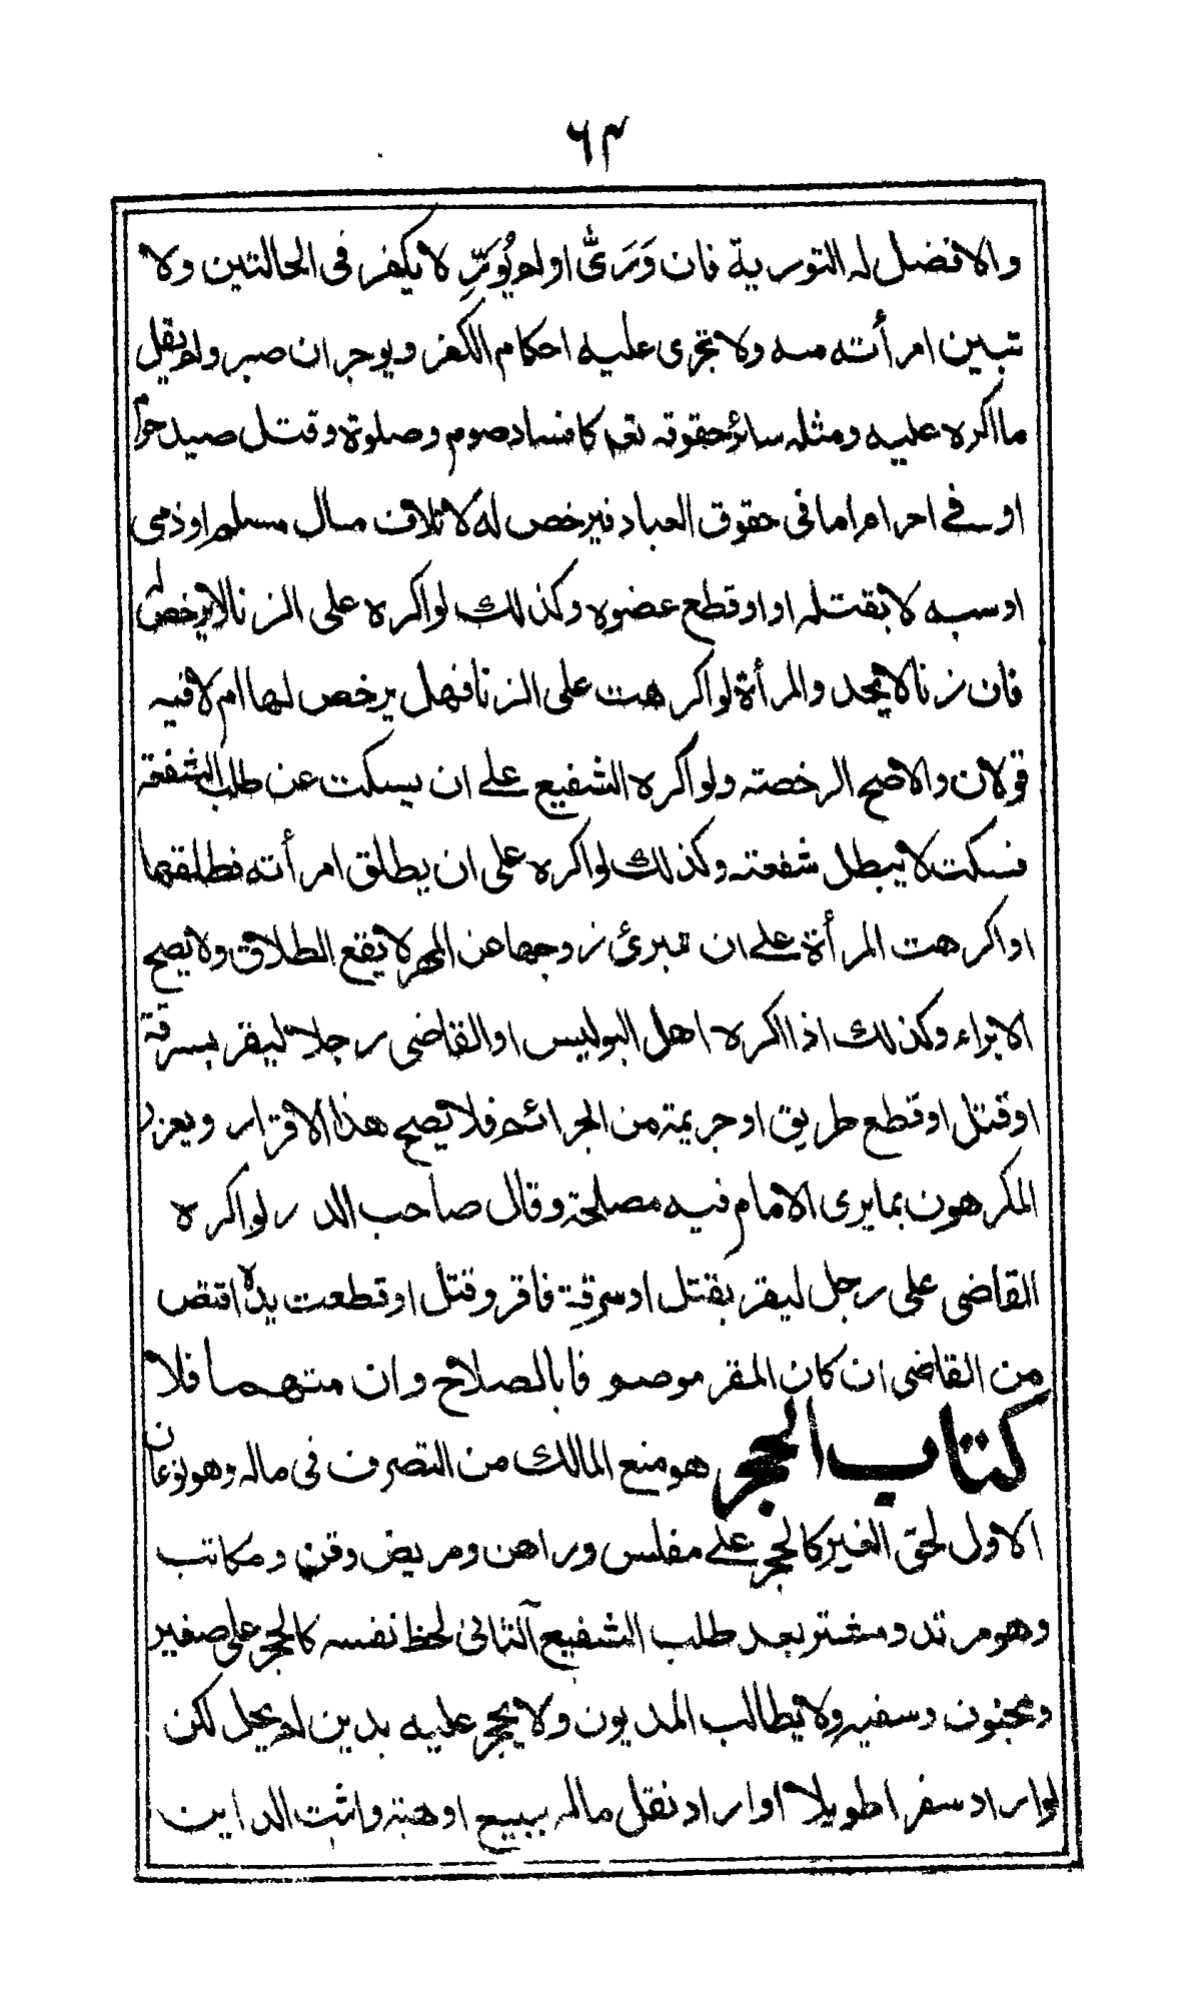 ٦٣
والافضل له التورية فان وَرَىّٰ اولم يُوَرِّ لا يكفر فى الحالتين ولا
تبين امرأته منه ولا تجرى عليه احكام الكفر ويوجر ان صبر ولم يقل
ما اكره عليه ومثله سائر حقوقه تعم كافساد صوم وصلوة وقتل صيد حرم
او فى احرام اما فى حقوق العباد فيرخص له لاتلاف مال مسلم او ذمى
اوسبه لا بقتله او اوقطع عضوه وكذلك لواكره على الزنا لا يرخص له
فان زنا لا يحد والمرأة لو اكرهت على الزنا فهل يرخص لها ام لا فيه
قولان والاصح الرخصة ولو اكره الشفيع على ان يسكت عن طلب الشفعة
فسكت لا يبطل شفعته وكذلك لو اكره على ان يطلق امرأته فطلقها
او اكرهت المرأة على ان تبرئ زوجها عن المهر لا يقع الطلاق ولا يصح
الابراء وكذلك اذا اكره اهل البوليس او القاضى رجلا ليقر بسرقة
او قتل او قطع طريق او جريمة من الجرائم فلا يصح هذا الاقرار ويعزر
المكرهون بما يرى الامام فيه مصلحة وقال صاحب الدر لو اكره
القاضى على رجل ليقر بقتل او سرقة فاقر وقتل او قطعت يده اقتص
من القاضى ان كان المقر موصوفا بالصلاح وان متهما فلا
كتاب الحجر هو منع المالك من التصرف فى ماله وهو نوعان
الاول لحق الغير كالحجر على مفلس وراهن ومريض وقن ومكاتب
وهو مرتد ومشتر بعد طلب الشفيع الثانى لحظ نفسه كالحجر على صغير
ومجنون وسفيه ولا يطالب المديون ولا يحجر عليه بدين لم يحل لكن
لو اراد سفرا طويلا او اراد نقل ماله ببيع او هبة واثبت الداين